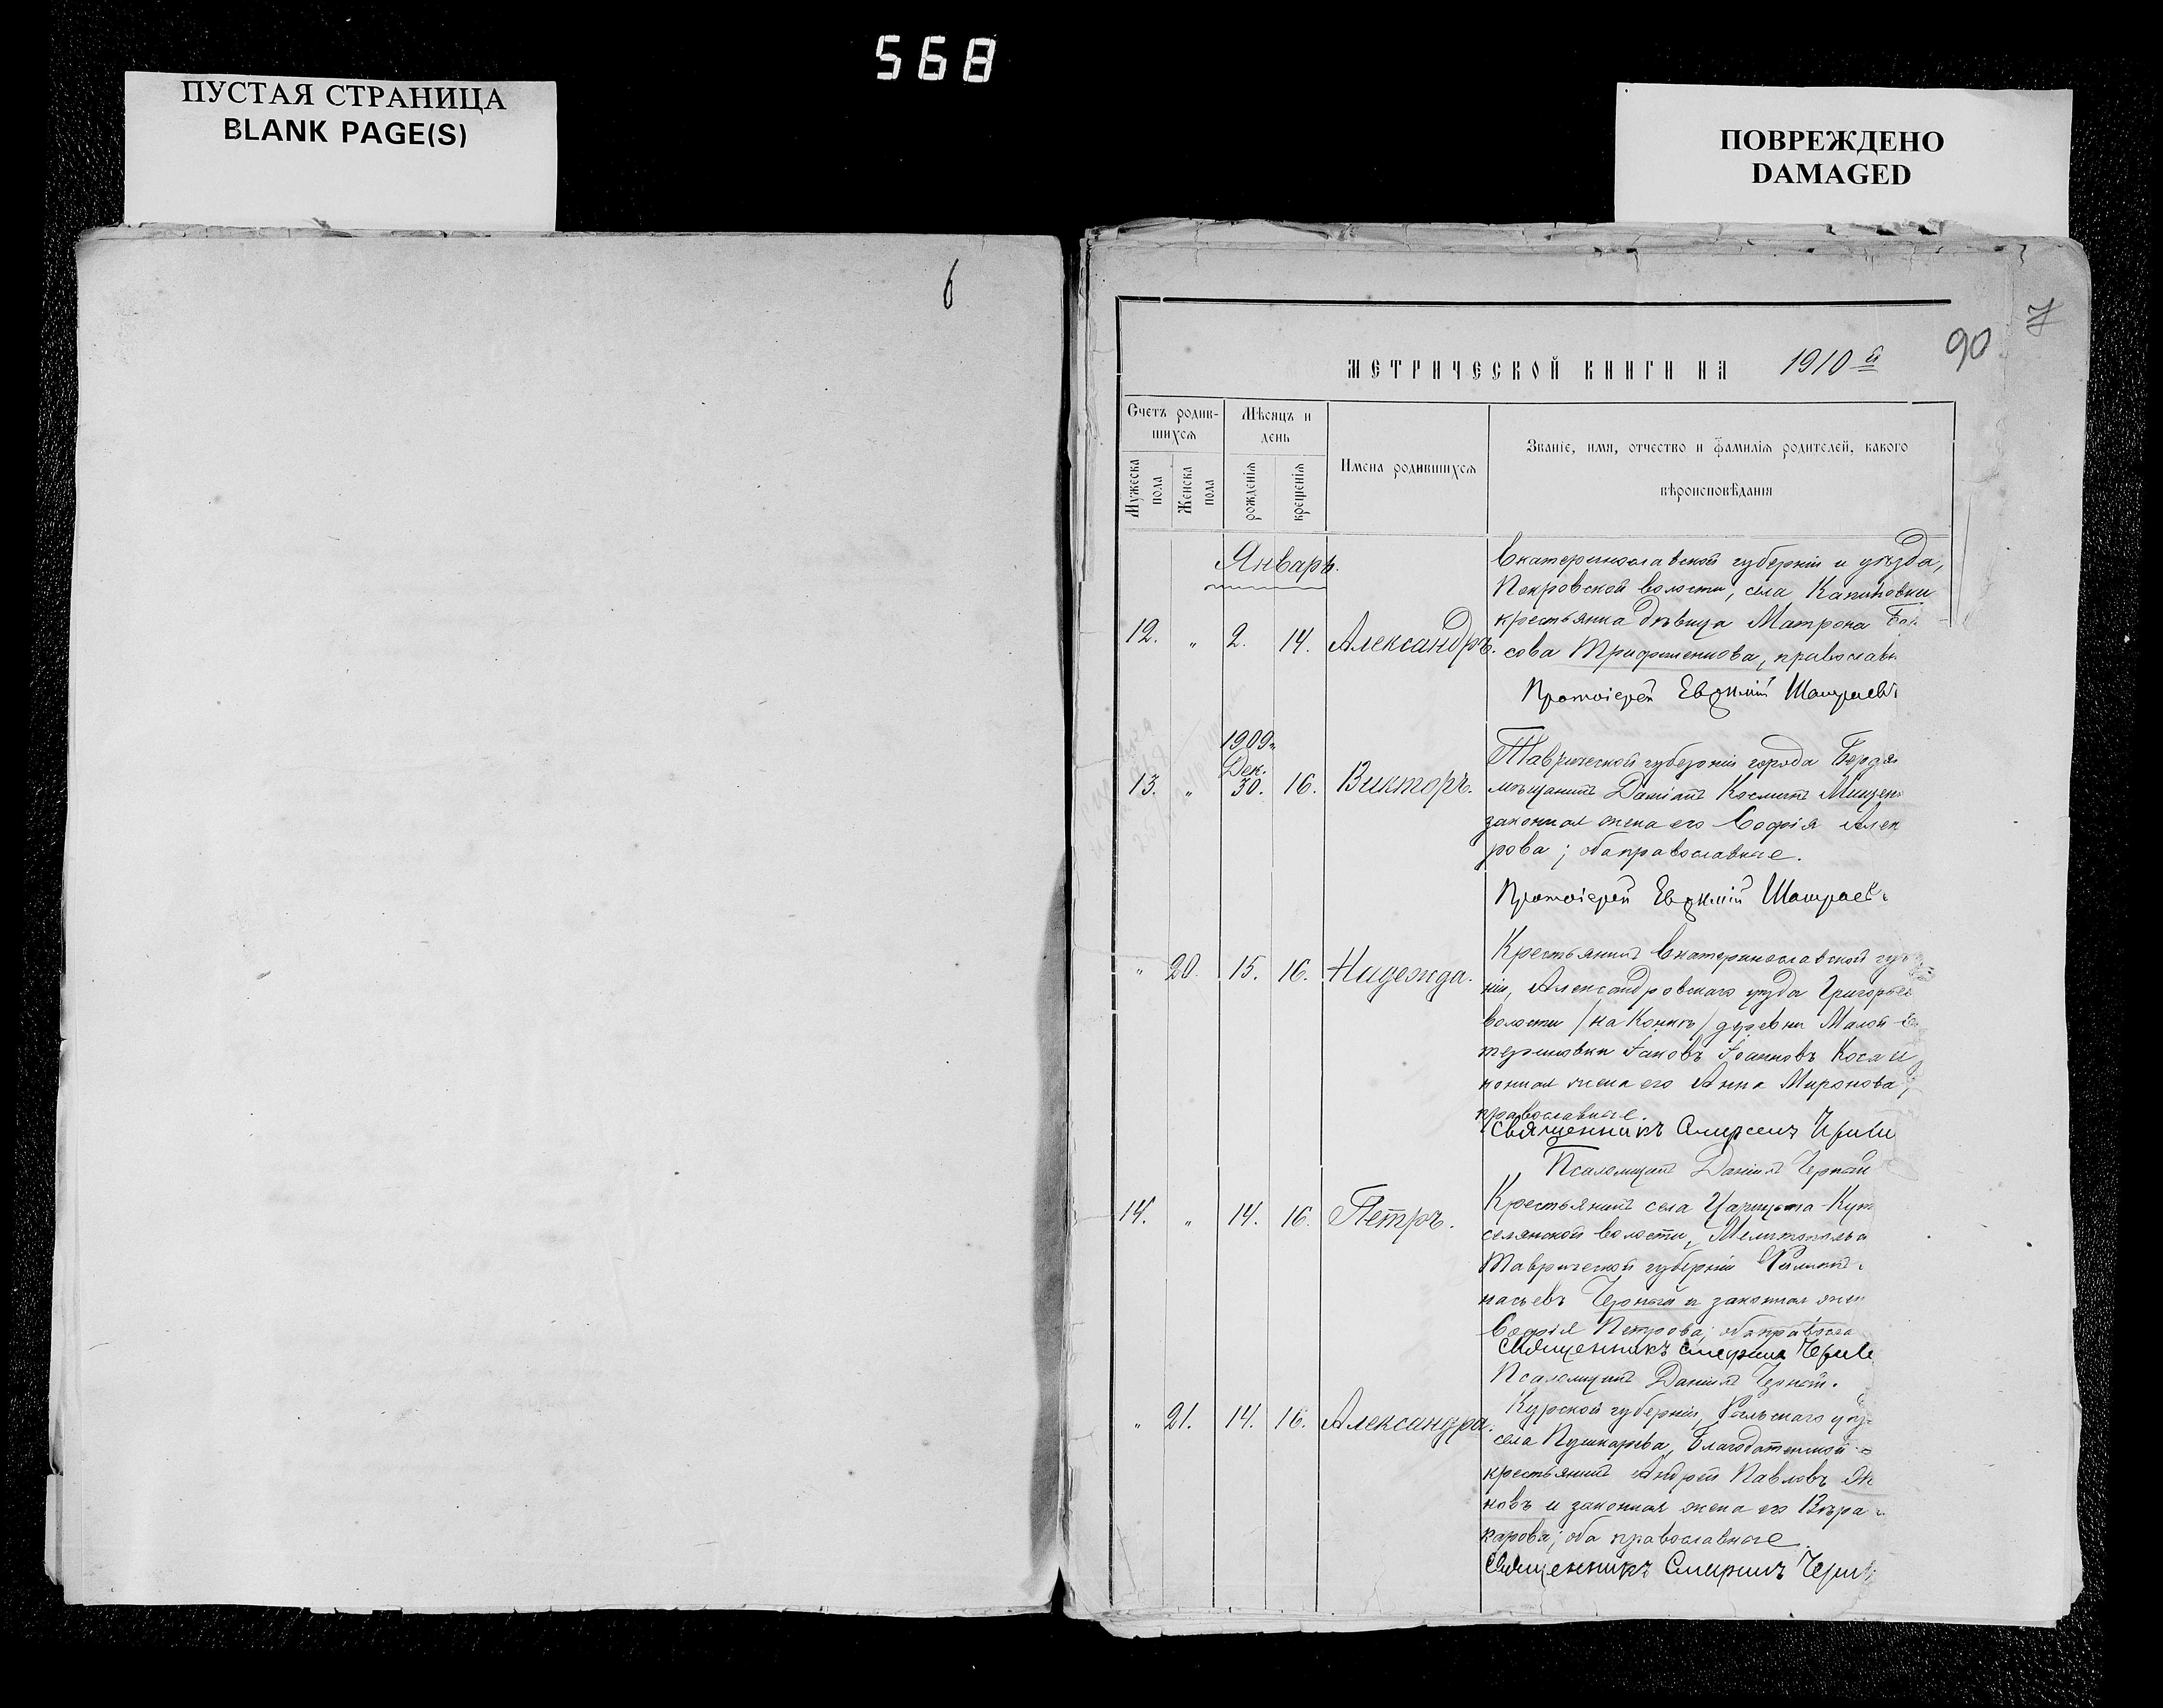 568
ПУСТАЯ СТРАНИЦА
BLANK PAGE(S)
ПОВРЕЖДЕНО
DAMAGED
6
7
90
МЕТРИЧЕСКОЙ КНИГИ НА 1910 й
Счетъ родив-
шихся
Мужеска пола
Женска пола
Мѣсяцъ и
день
рожденія
крещенія
Имена родившихся
Званіе, имя, отчество и фамилія родителей, какого
вѣроисповѣданія
Январь.
12. „ 2. 14. Александръ.
Екатеринославской губерніи и уѣзда,
Покровской волости, села
крестьянка дѣвица Матрона
сова православн
Протоіерей Евѳимій
1909
Дек.
13. „ 30. 16. Викторъ.
Таврической губерніи города Бердя
мѣщанинъ Даміанъ Косминъ Мищен
законная жена его Софія Алек
рова; оба православные.
Протоіерей Евѳимій
„ 20. 15. 16. Надежда.
Крестьянинъ Екатеринославской губ
ніи, Александровскаго уѣзда Григорьев
волости /на Конкѣ/ деревни Малой
териновки Іаковъ Іоанновъ Коса и з
конная жена его Анна Миронова,
православные.
Священникъ
Псаломщикъ Даніилъ Черный
14. „ 14. 16. Петръ.
Крестьянинъ села Царицына-Кут
селянской волости, Мелитопольск
Таврической губерніи
насьевъ Черный и законная жен
Софія Петрова; оба правосла
Священникъ
Псаломщикъ Даніилъ Черный.
„ 21. 14. 16. Александра.
Курской губерніи, Рыльскаго уѣз
села Пушкарева, Благодатенской
крестьянинъ Андрей Павловъ
новъ и законная жена его Вѣра
карова; оба православные.
Священникъ